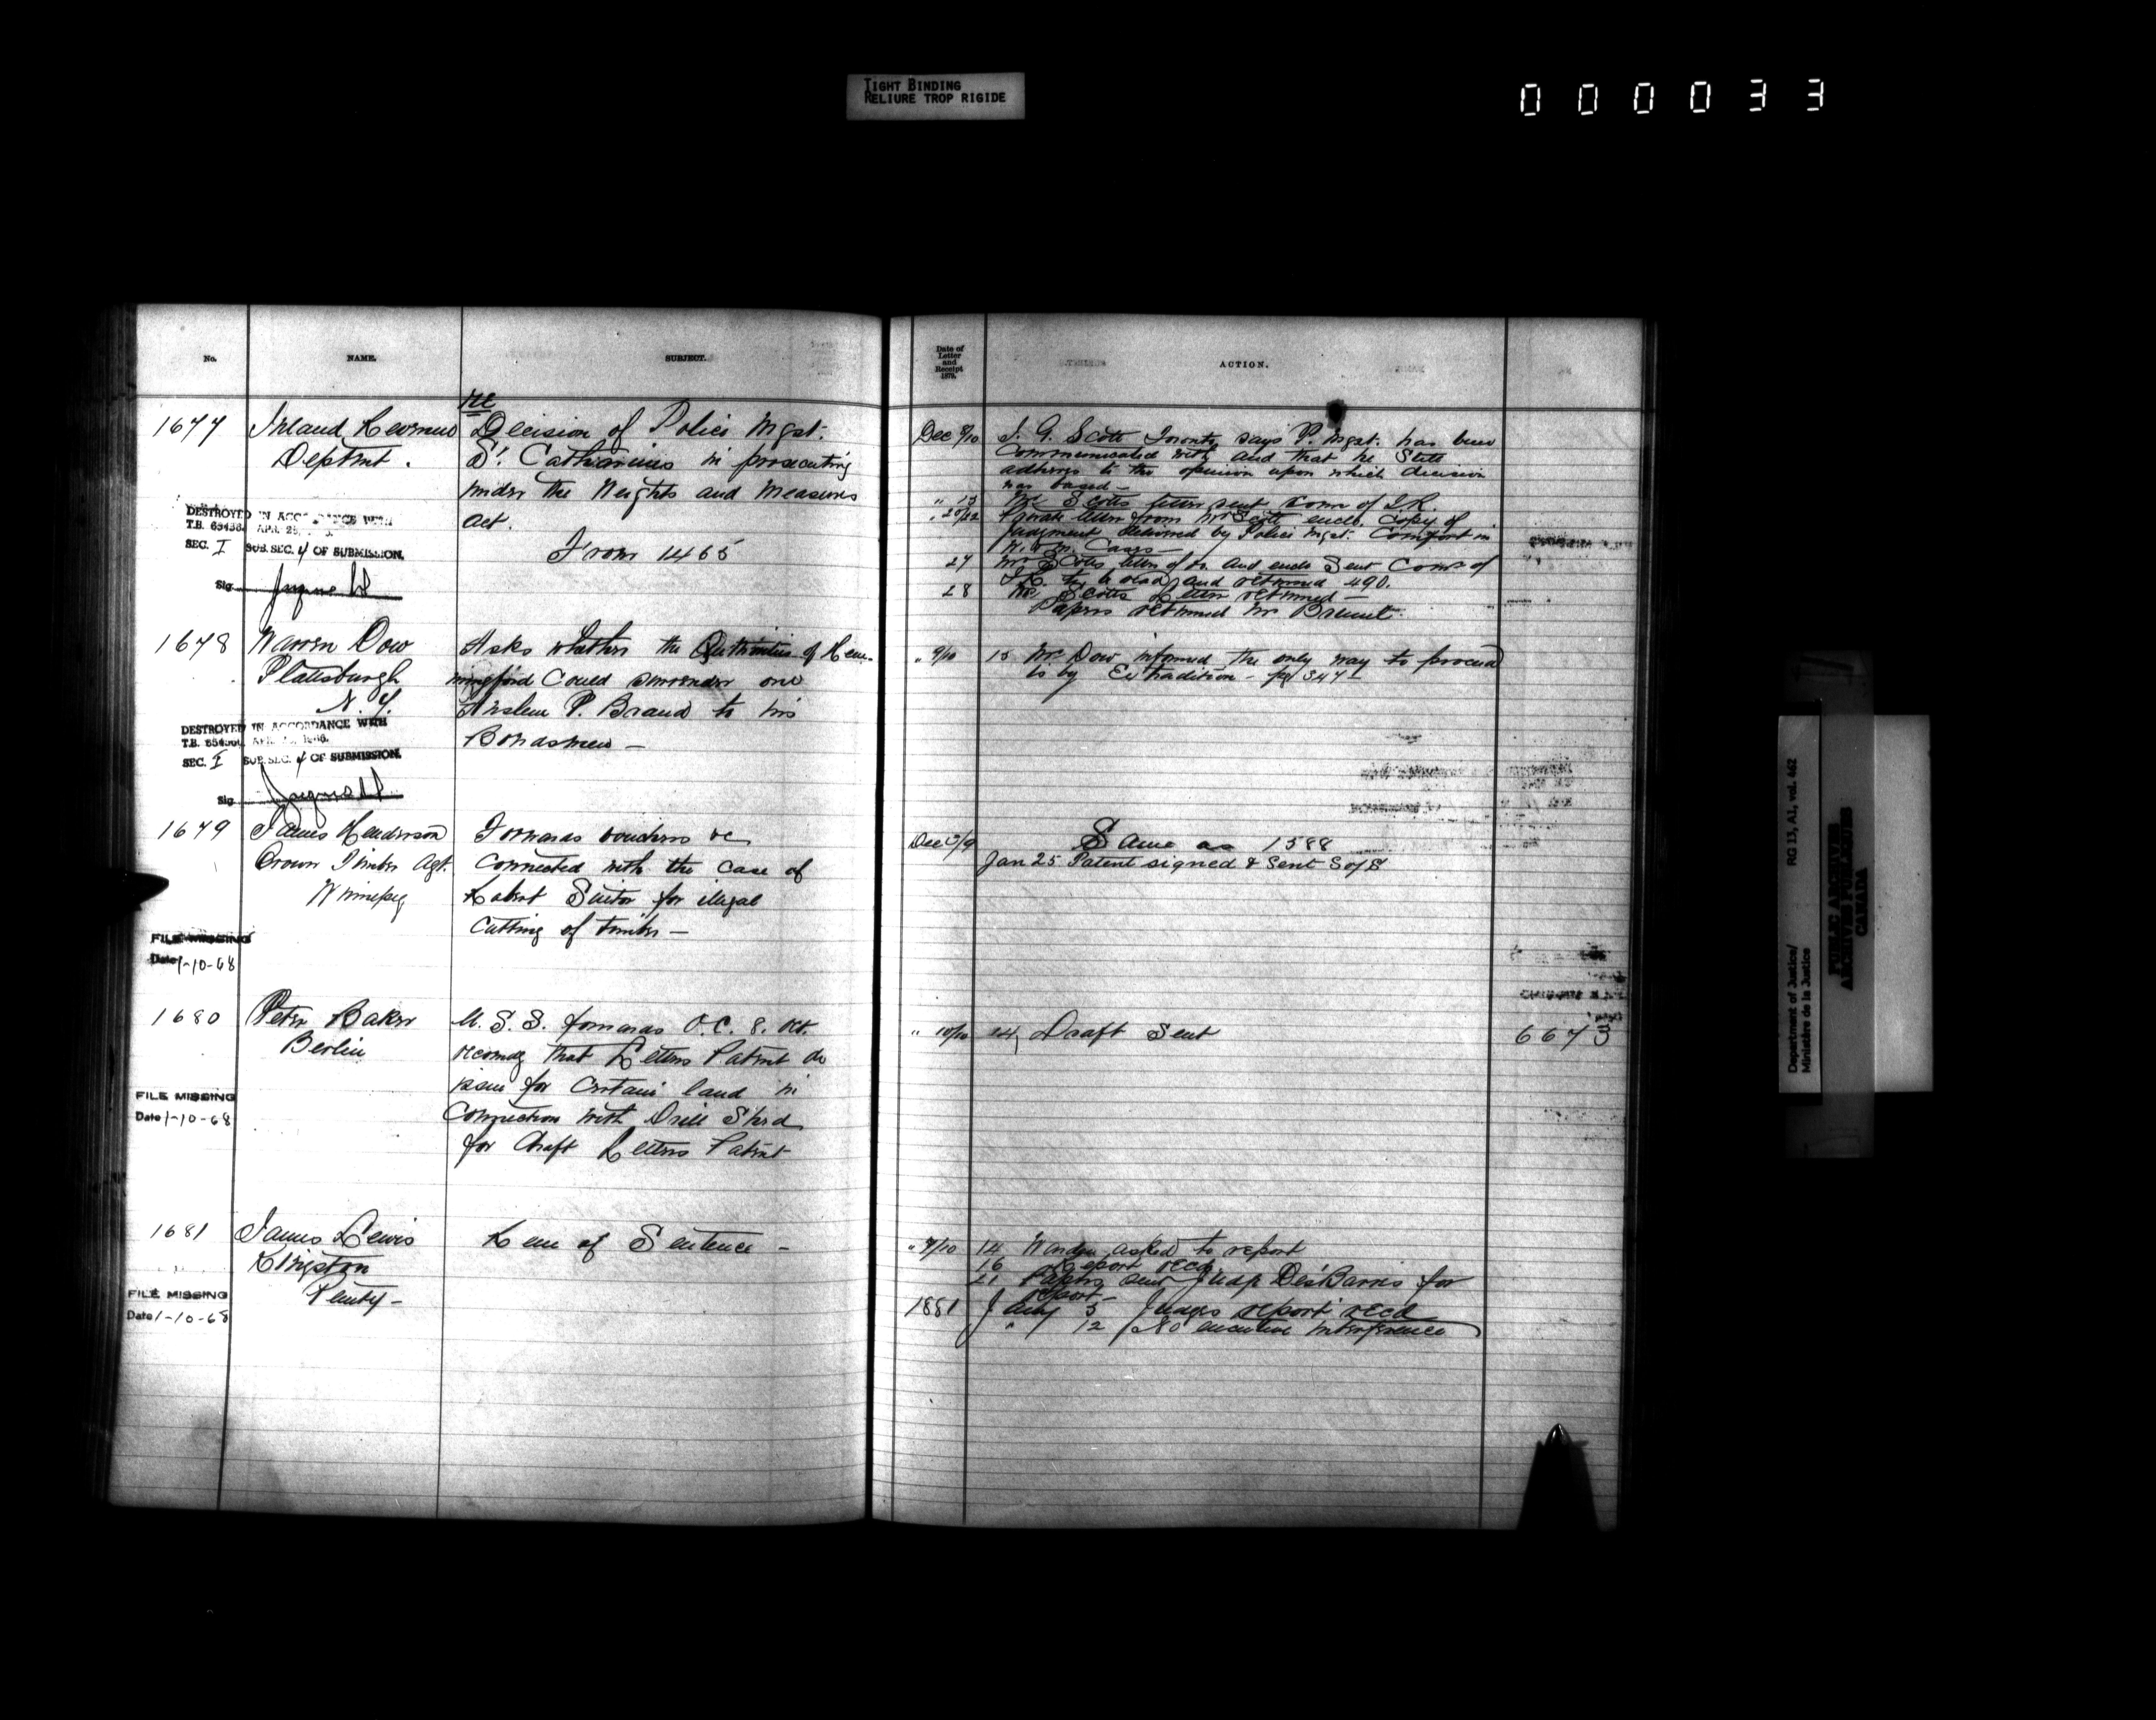 TIGHT BINDING
RELIURE TROP RIGIDE
000033
No.
NAME.
SUBJECT.
1677
Inland Revenue
Deptmt.
re
Decision of Police Mgst.
St. Catharines in prosecuting
under the Weights and Measures
Act.
From 1465
DESTROYED IN ACCORDANCE WITH
T.B. 65436
SEC. I SUB. SEC. 4 OF SUBMISSION.
Sig.
1678
Warren Dow
Plattsburgh
N.Y.
Asks whether the Authorities of Hem-
mingford Could surrender one
P. Braud to his
Bondsmen —
DESTROYED IN ACCORDANCE WITH
T.B.
SEC. I SUB. SEC. 4 OF SUBMISSION.
Sig.
1679
James Henderson
Crown Timber Agt.
Winnipeg
Forwards vouchers &c
Connected with the case of
Robert Suitor for illegal
Cutting of timber —
FILE MISSING
Date 1-10-68
1680
Peter Baker
Berlin
U. S. S. forwards O.C. 8. Oct.
recomdg that Letters Patent do
issue for Certain land in
Connection with Drill Shed
for draft Letters Patent
FILE MISSING
Date 1-10-68
1681
James Lewis
Kingston
Penity —
Rem of Sentence —
FILE MISSING
Date 1-10-68
Date of
Letter
and
Receipt
1879.
ACTION.
Dec 8/10 J. G. Scott Toronto says P. Mgst. has been
Communicated with and that he Still
adheres to the opinion upon which decision
was based —
" 13 Mr Scotts letter sent Comr of I.R.
" 20/22 Private letter from Mr Scott encls. Copy of
judgment delivered by Police Mgst. Comfort in
W. & M. Cases —
27 Mr Scotts letter of and encls Sent Comr of
I.R. to be read and returned 490.
28 Mr Scotts letter returned —
Papers returned Mr Brunel.
" 9/10 15 Mr Dow informed the only way to proceed
is by Extradition — pg 347
Dec 3/9 Same as 1588
Jan 25 Patent signed & Sent S of S
" 10/10 24, Draft Sent 6673
" 9/10 14 Warden asked to report
16 Report recd.
21 Papers sent Judge DesBarres for
report —
1881 Jany 5 Judges report recd
" 12 No executive interference
Department of Justice/
Ministère de la Justice
RG 13, A1, vol. 462
PUBLIC ARCHIVES
ARCHIVES PUBLIQUES
CANADA